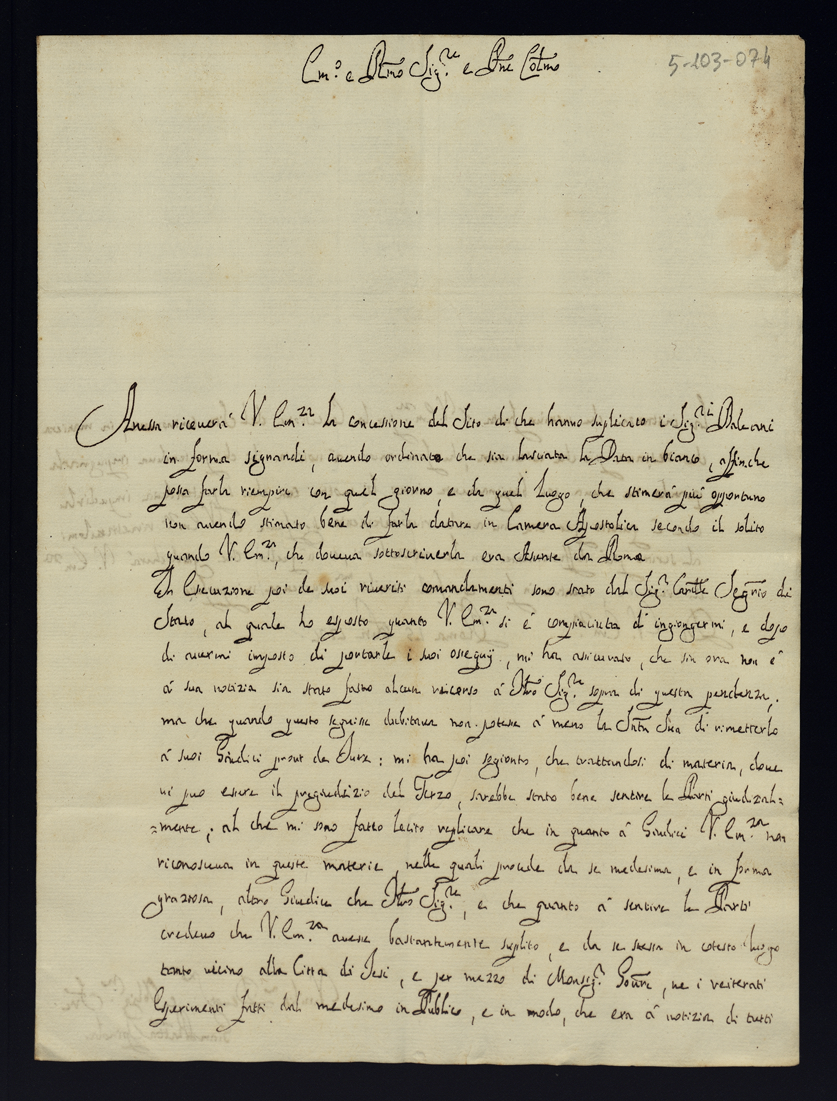 5-203-074
Em.o e Rmo Sig.re e Pne Colmo
Anessa riceverà V. Em.za la concessione del Sito di che hanno suplicato i Sig.ri Baleani
in forma segnandi, avendo ordinato che sia lasciata la Data in bianco, affinche
possa farla riempire con quel giorno, e da quel Luogo, che stimerà più opportuno
non avendo stimato bene di farla datare in Camera Apostolica secondo il solito
quando V. Em.za, che doveva sottoscriverla era Assente da Roma
In Esecuzione poi de suoi riveriti comandamenti sono stato dal Sig.r Card.le Segrio di
Stato, al quale ho esposto quanto V. Em.za si è compiaciuta di ingiongermi, e dopo
di avermi imposto di portarle i suoi ossequij, mi ha assicurato, che sin ora non è
à sua notizia sia stato fatto alcun ricorso à Nro Sig.re sopra di questa pendenza,
ma che quando questo seguisse dubitava non potesse à meno la Santà Sua di rimetterlo
à suoi Giudici prout de Jure: mi ha poi segionto, che trattandosi di materia, dove
vi può essere il pregiudizio del Terzo, sarebbe stato bene sentire le Parti giudizial=
=mente; al che mi sono fatto lecito replicare che in quanto à Giudici V. Em.za non
riconosceva in queste materie, nelle quali procede da se medesima, e in forma
graziosa, altro Giudice che Nro Sig.re, e che quanto à sentire le Parti
credevo che V. Em.za avesse bastantemente suplito, e da se stessa in cotesto luogo
tanto vicino alla Città di Jesi, e per mezzo di Monsig.r Govre, ne i reiterati
Esperimenti fatti dal medesimo in Publico, e in modo, che era à notizia di tutti